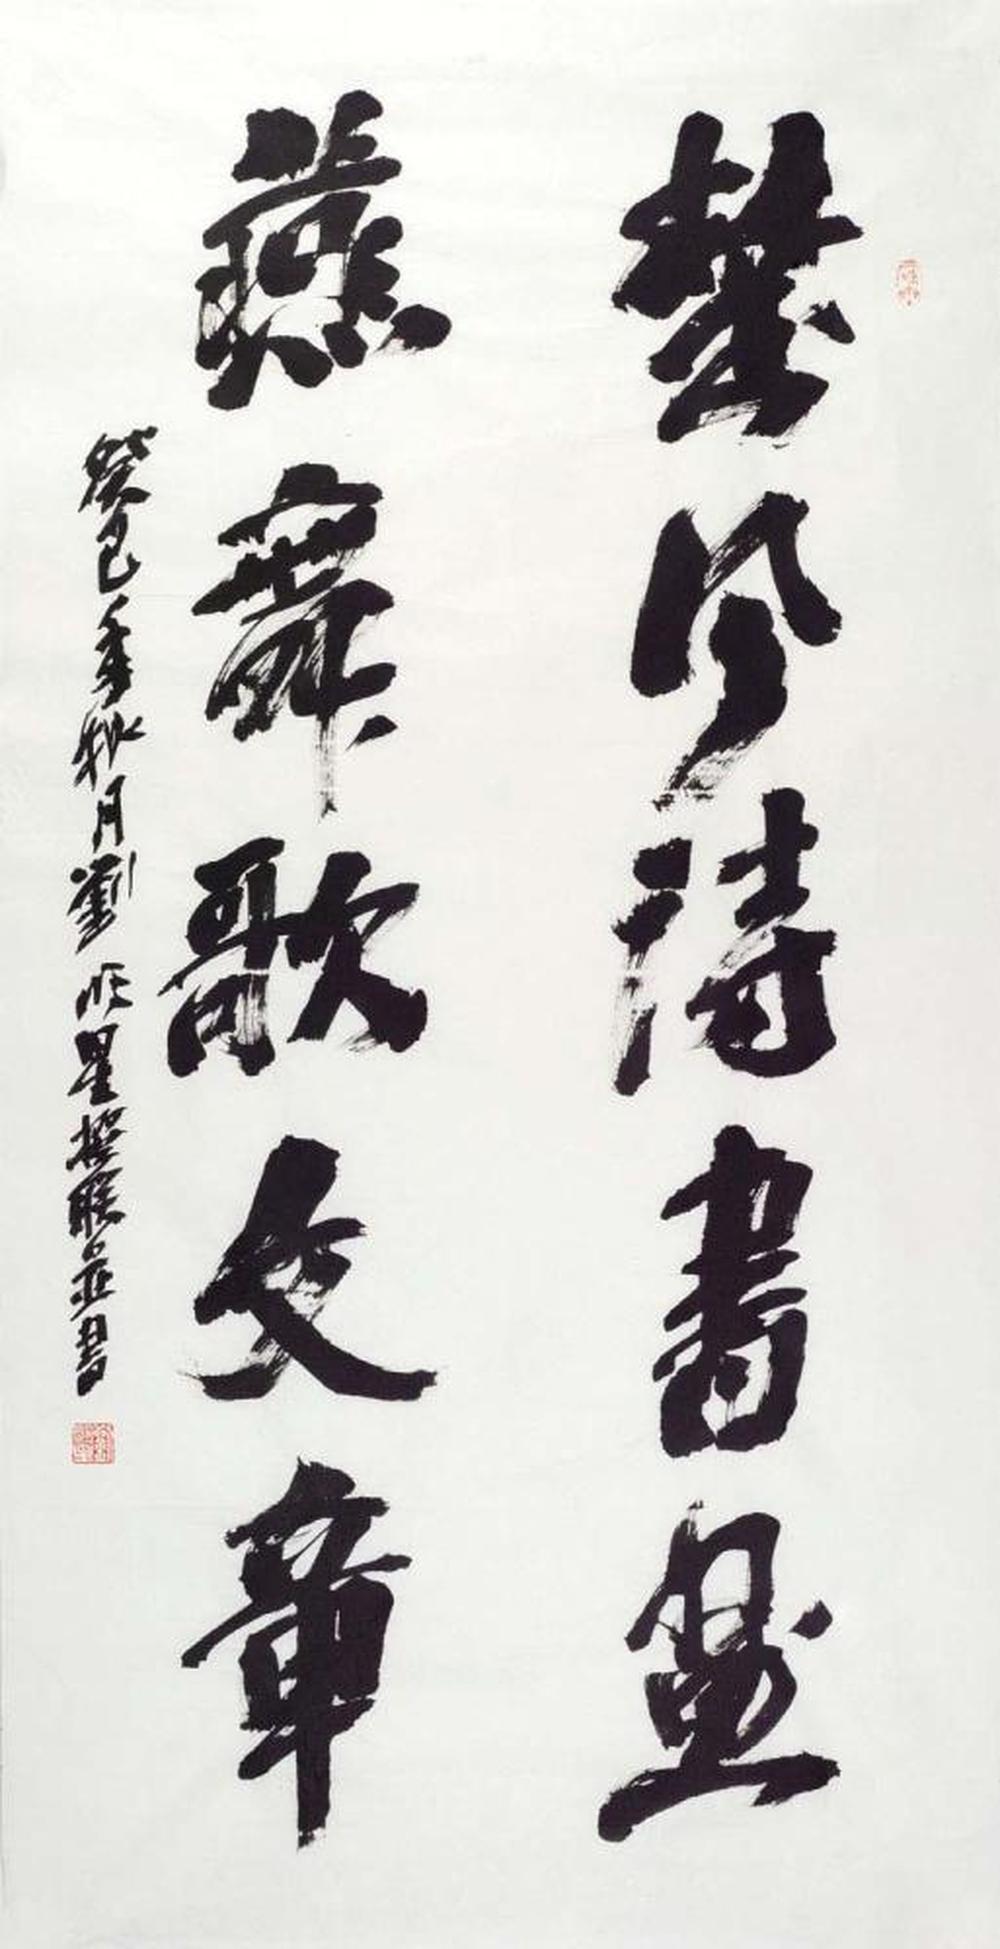 楚风詩書畫
燕舞歌文章
癸巳年秋月劉星撰聯並書